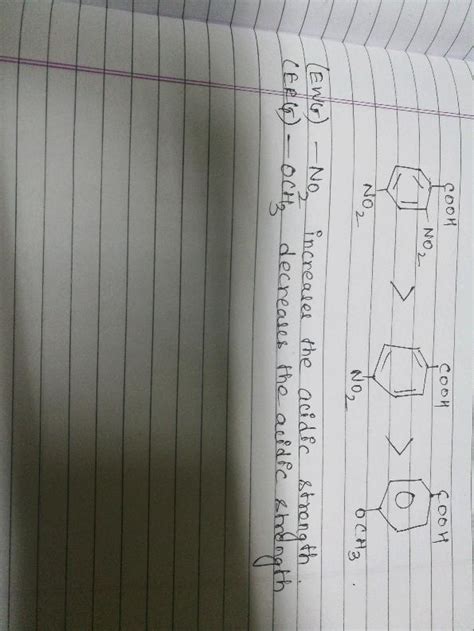 COOH COOH COOH
NO2 > >
NO2 NO2 OCH3 .
(EWG) - NO2 increases the acidic strength .
(ERG) - OCH3 decreases the acidic strength